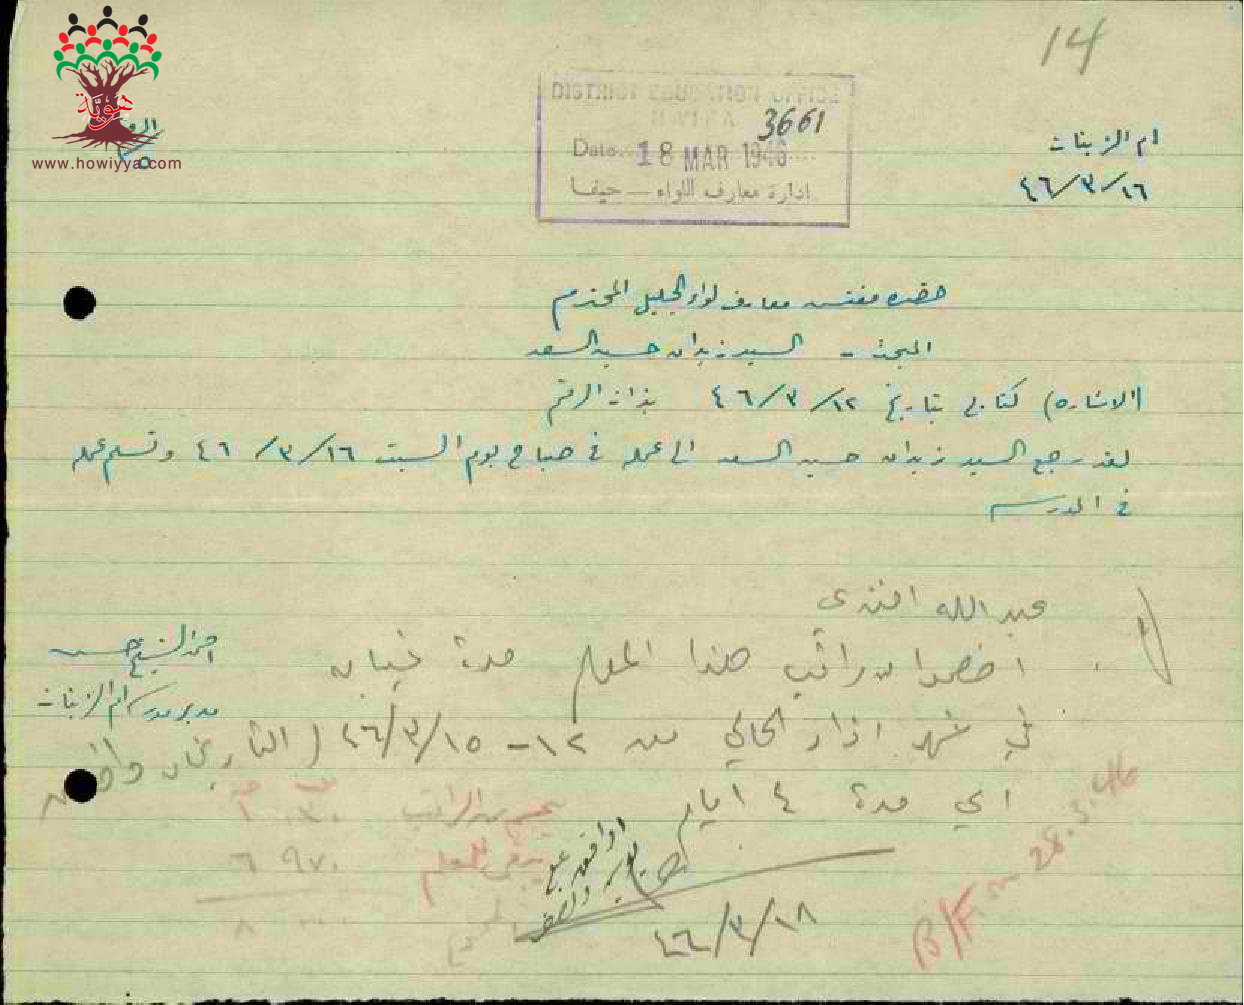 14
هويّة
www.howiyya.com
DISTRICT EDUCATION OFFICE
HAIFA
3661
Date 18 MAR 1946
ادارة معارف اللواء — حيفا
ام الزينات
٤٦/٣/١٦
حضرة مفتش معارف لواء الجليل المحترم
المبحث - السيد زيدان حسين السعد
(الاشارة) كتابي بتاريخ ٤٦/٣/١٢ بذات الرقم
لقد رجع السيد زيدان حسين السعد الى عمله في صباح يوم السبت ٤٦/٣/١٦ وتسلم عمله
في المدرسة
احمد الشيخ حسن
مدير مدرسة ام الزينات
عبد الله افندي
اخصموا من راتب هذا المعلم مدة غيابه
في شهر اذار الحالي من ١٢ - ٤٦/٣/١٥ (التاريخان
اي مدة ٤ ايام
٤٦/٣/١٨
يخصم من الراتب
يبقى للمعلم ٦ ٩٧٠
B/F on 28.3.46